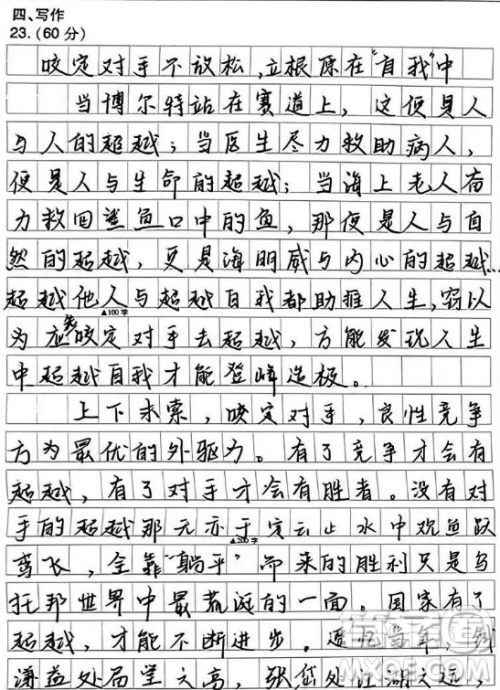 四、写作
23.(60分)
咬定对手不放松,立根原在"自我"中
当博尔特站在赛道上,这便是人
与人的超越;当医生尽力救助病人,
便是人与生命的超越;当海上老人奋
力救回鲨鱼口中的鱼,那便是人与自
然的超越,更是海明威与内心的超越…
超越他人与超越自我都助推人生,窃以
▲100字
为应先咬定对手去超越,方能发现人生
中超越自我才能登峰造极。
上下求索,咬定对手,良性竞争
方为最优的外驱力。有了竞争才会有
超越,有了对手才会有胜者。没有对
手的超越那无亦于定云止水中观鱼跃
▲200字
鸢飞,全靠"躺平"而来的胜利只是乌
托邦世界中最荒诞的一面。国家有了
超越,才能不断进步。遥忆当年,
处
MXQE.COM